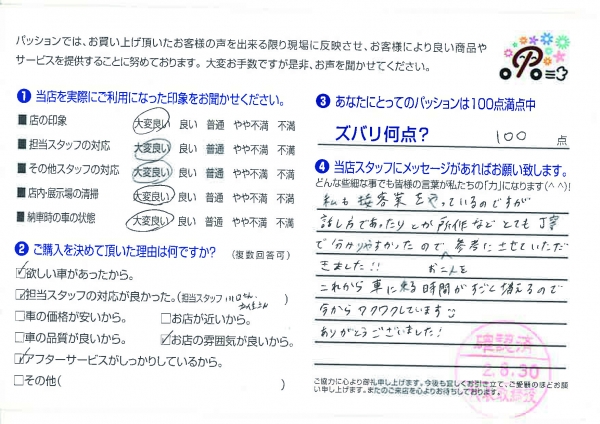 パッションでは、お買い上げ頂いたお客様の声を出来る限り現場に反映させ、お客様により良い商品や
サービスを提供することに努めております。 大変お手数ですが是非、お声を聞かせてください。
❶ 当店を実際にご利用になった印象をお聞かせください。
■ 店の印象 大変良い 良い 普通 やや不満 不満
■ 担当スタッフの対応 大変良い 良い 普通 やや不満 不満
■ その他スタッフの対応 大変良い 良い 普通 やや不満 不満
■ 店内・展示場の清掃 大変良い 良い 普通 やや不満 不満
■ 納車時の車の状態 大変良い 良い 普通 やや不満 不満
❷ ご購入を決めて頂いた理由は何ですか? (複数回答可)
☑欲しい車があったから。
☑担当スタッフの対応が良かった。(担当スタッフ 川口さん、)
□車の価格が安いから。 □お店が近いから。
□車の品質が良いから。 ☑お店の雰囲気が良いから。
☑アフターサービスがしっかりしているから。
□その他( )
❸ あなたにとってのパッションは100点満点中
ズバリ何点? 100 点
❹ 当店スタッフにメッセージがあればお願い致します。
どんな些細な事でも皆様の言葉が私たちの「力」になります(^ ^)!
私も接客業をやっているのですが
話し方であったり しか 所作など とても 丁寧
で分かりやすかったので、参考にさせていただ
きました!! お二人を
これから 車に乗る時間がすごく増えるので
今からワクワクしています
ありがとうございました!
確認済
2.8.30
代表取締役
ご協力に心より御礼申し上げます。今後も宜しくお引き立て、ご愛顧のほどお願
い申し上げます。またのご来店を心よりお待ちしております。